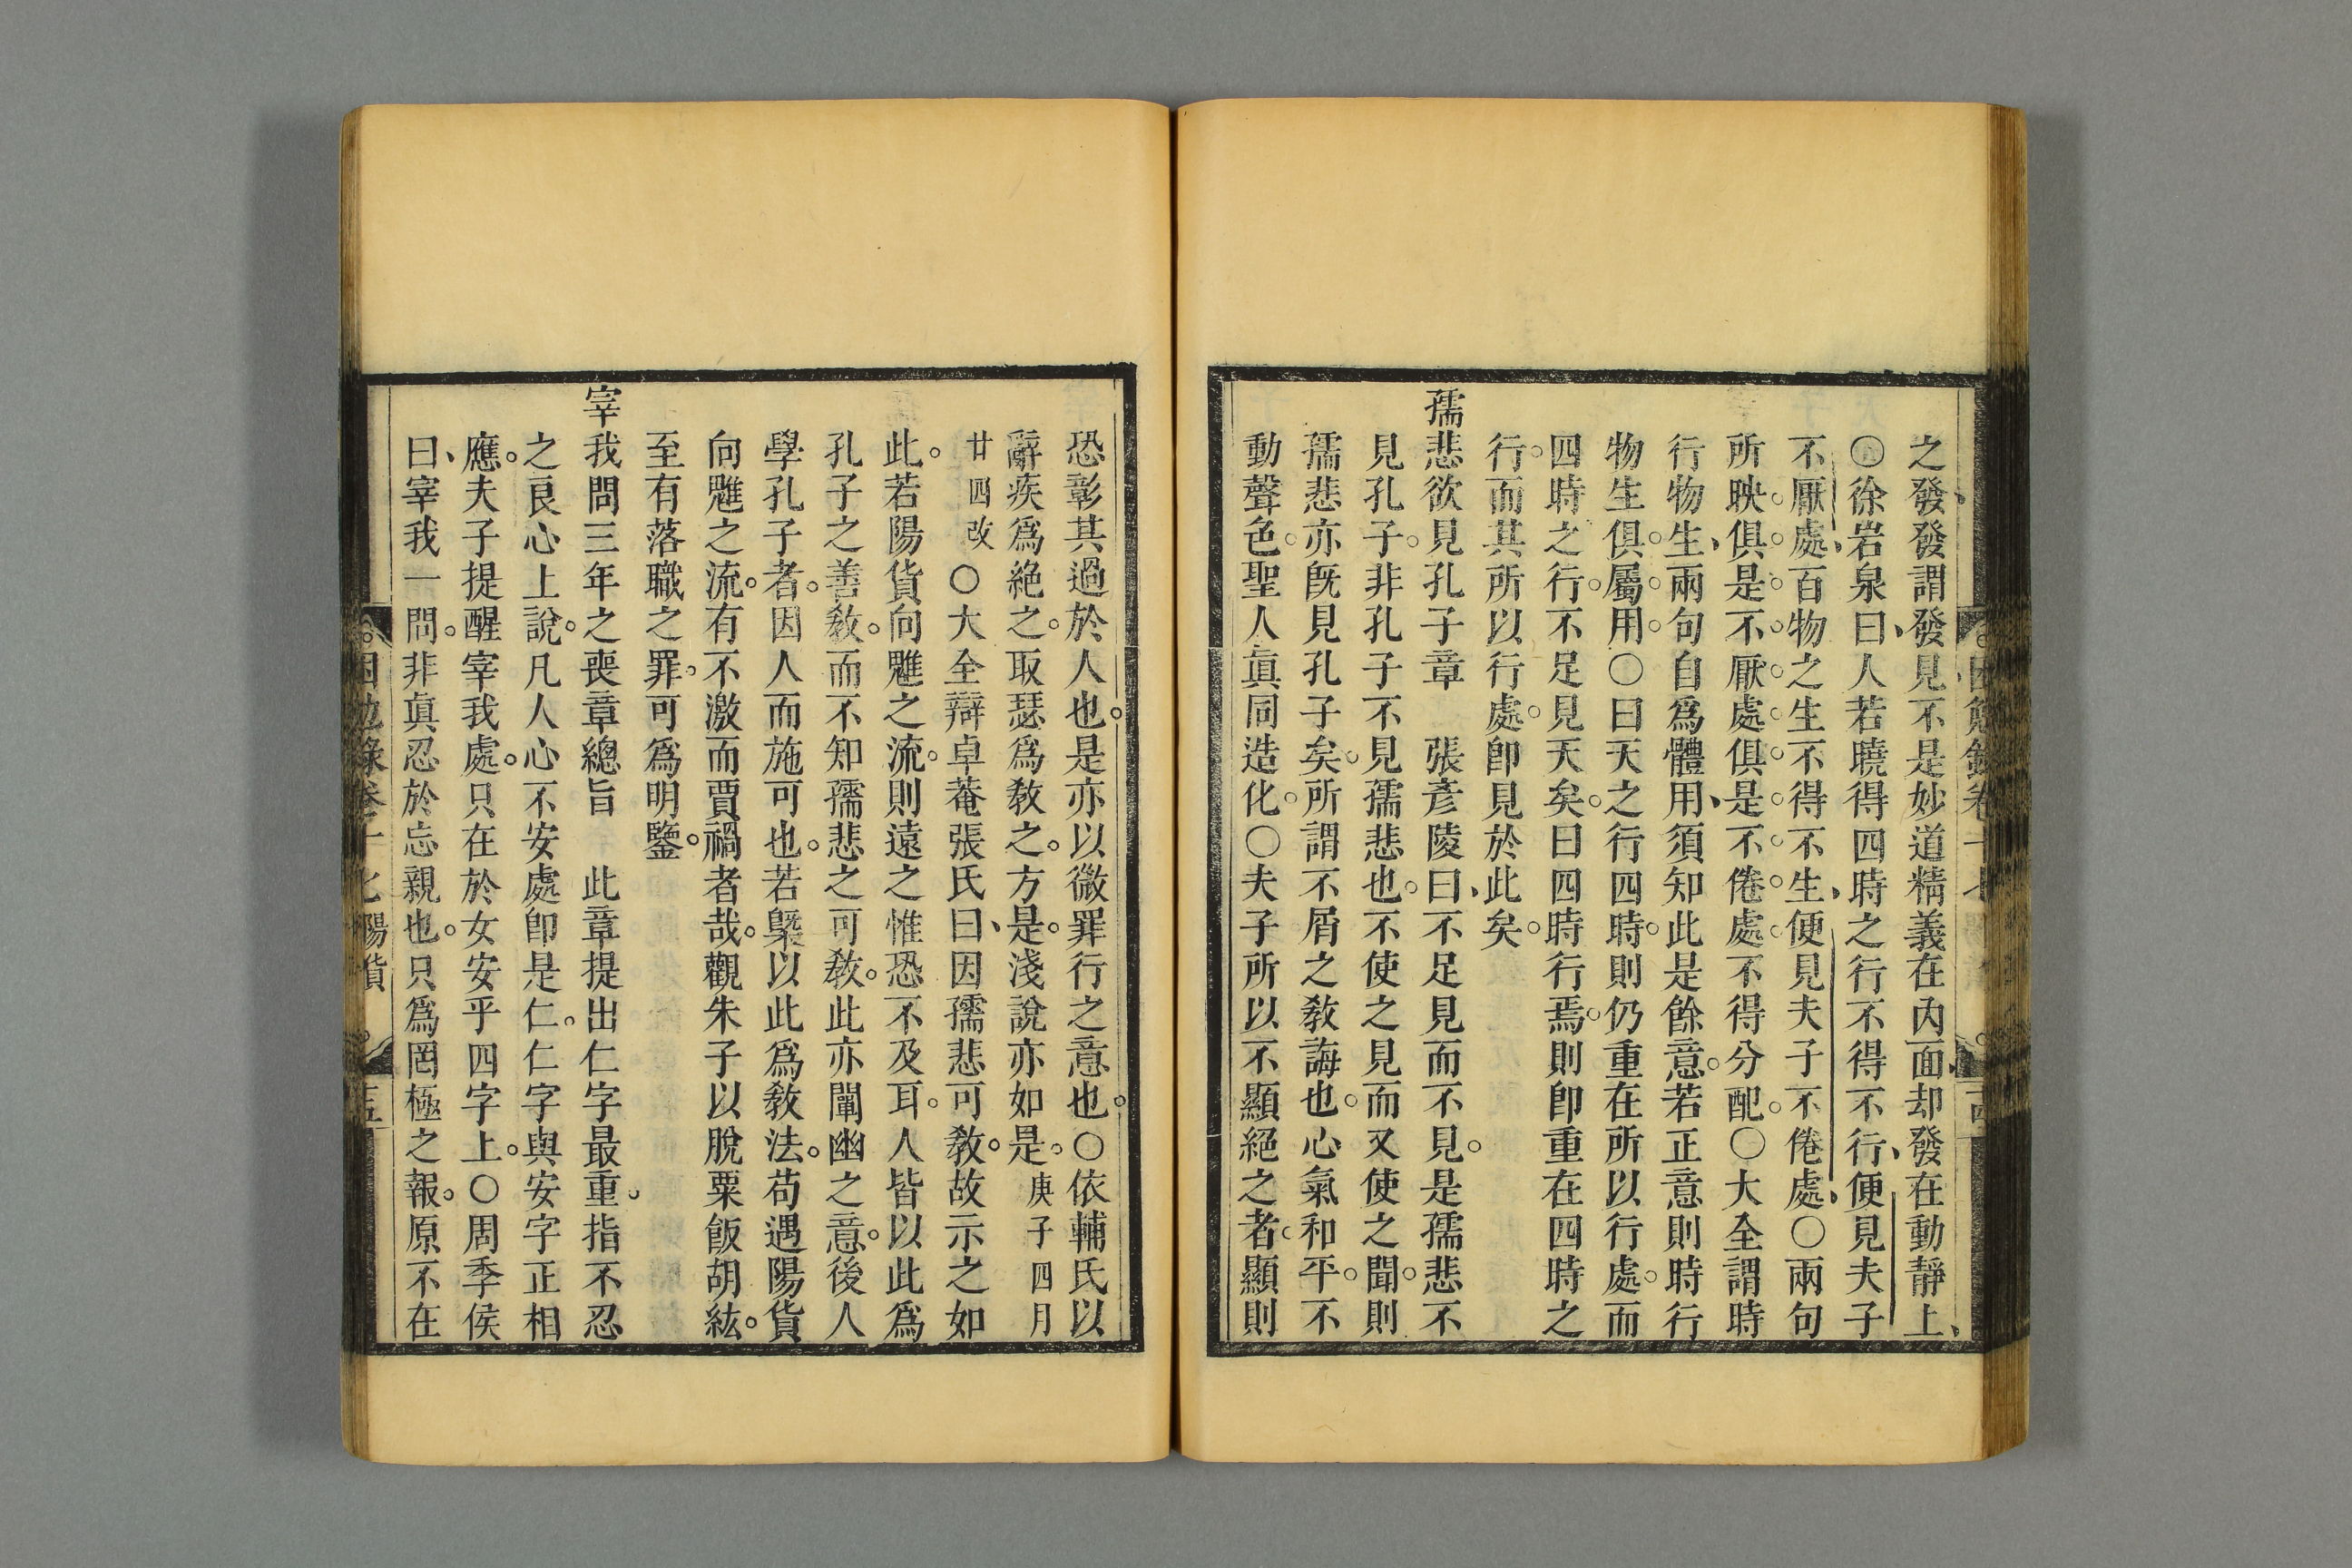 之發發謂發見不是妙道精義在內面却發在動靜上、
○徐岩泉曰、人若曉得四時之行不得不行、便見夫子
不厭處、百物之生不得不生、便見夫子不倦處、○兩句
所映。俱。是。不。厭。處。俱。是。不。倦。處。不得分配。○大全謂時
行物生、兩句自爲體用、須知此是餘意。若正意則時行
物生俱。屬。用。○曰天之行四時。則仍重在所以行處。而
四時之行。不足見天矣。曰四時行焉。則卽重在四時之
行。而其所以行處。卽見於此矣。
孺悲欲見孔子章　張彥陵曰、不足見而不見。是孺悲不
見孔子。非孔子不見孺悲也。不使之見而又使之聞。則
孺悲亦旣見孔子矣。所謂不屑之敎誨也。心氣和平。不
動聲色。聖人眞同造化。○夫子所以不顯絕之者。顯則
恐彰其過於人也。是亦以微罪行之意也。○依輔氏以
辭疾爲絕之。取瑟爲敎之。方是。淺說亦如是。庚子四月
廿四改　○大全辯卓菴張氏曰、因孺悲可敎。故示之如
此。若陽貨向魋之流。則遠之惟恐不及耳。人皆以此爲
孔子之善敎。而不知孺悲之可敎。此亦闡幽之意。後人
學孔子者。因人而施可也。若槩以此爲敎法。苟遇陽貨
向魋之流。有不激而賈禍者哉。觀朱子以脫粟飯胡紘。
至有落職之罪。可爲明鑒。
宰我問三年之喪章總旨　此章提出仁字最重。指不忍
之良心上說。凡人心不安處卽是仁。仁字與安字正相
應。夫子提醒宰我處。只在於女安乎四字上。○周季侯
曰、宰我一問。非眞忍於忘親也。只爲罔極之報。原不在
因勉錄卷十七陽貨